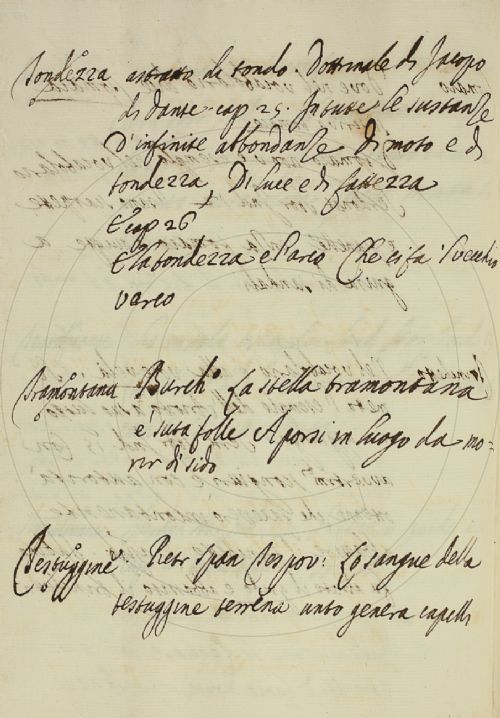 Tondezza astratto di tondo. Dottrinale di Jacopo
di dante cap 25. In tutte le sustanze
D'infinite abbondanze Di moto e di
tondezza, Di luce e di fattezza
E cap 26
E la tondezza e l'arco Che ci fa
varco
Tramontana Burch° La stella tramontana
è suta folle A porsi in luogo da mo=
rir di sido
Testuggine Pietr Span Tes pov: Lo sangue della
testuggine terrena unto genera capelli